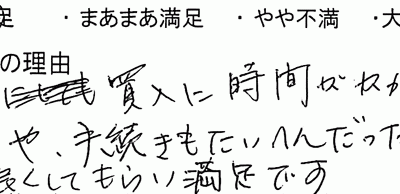 ・まあまあ満足 ・やや不満 ・大
の理由
買入に時間がかか
や、手続きもたいへんだった
良くしてもらい満足です